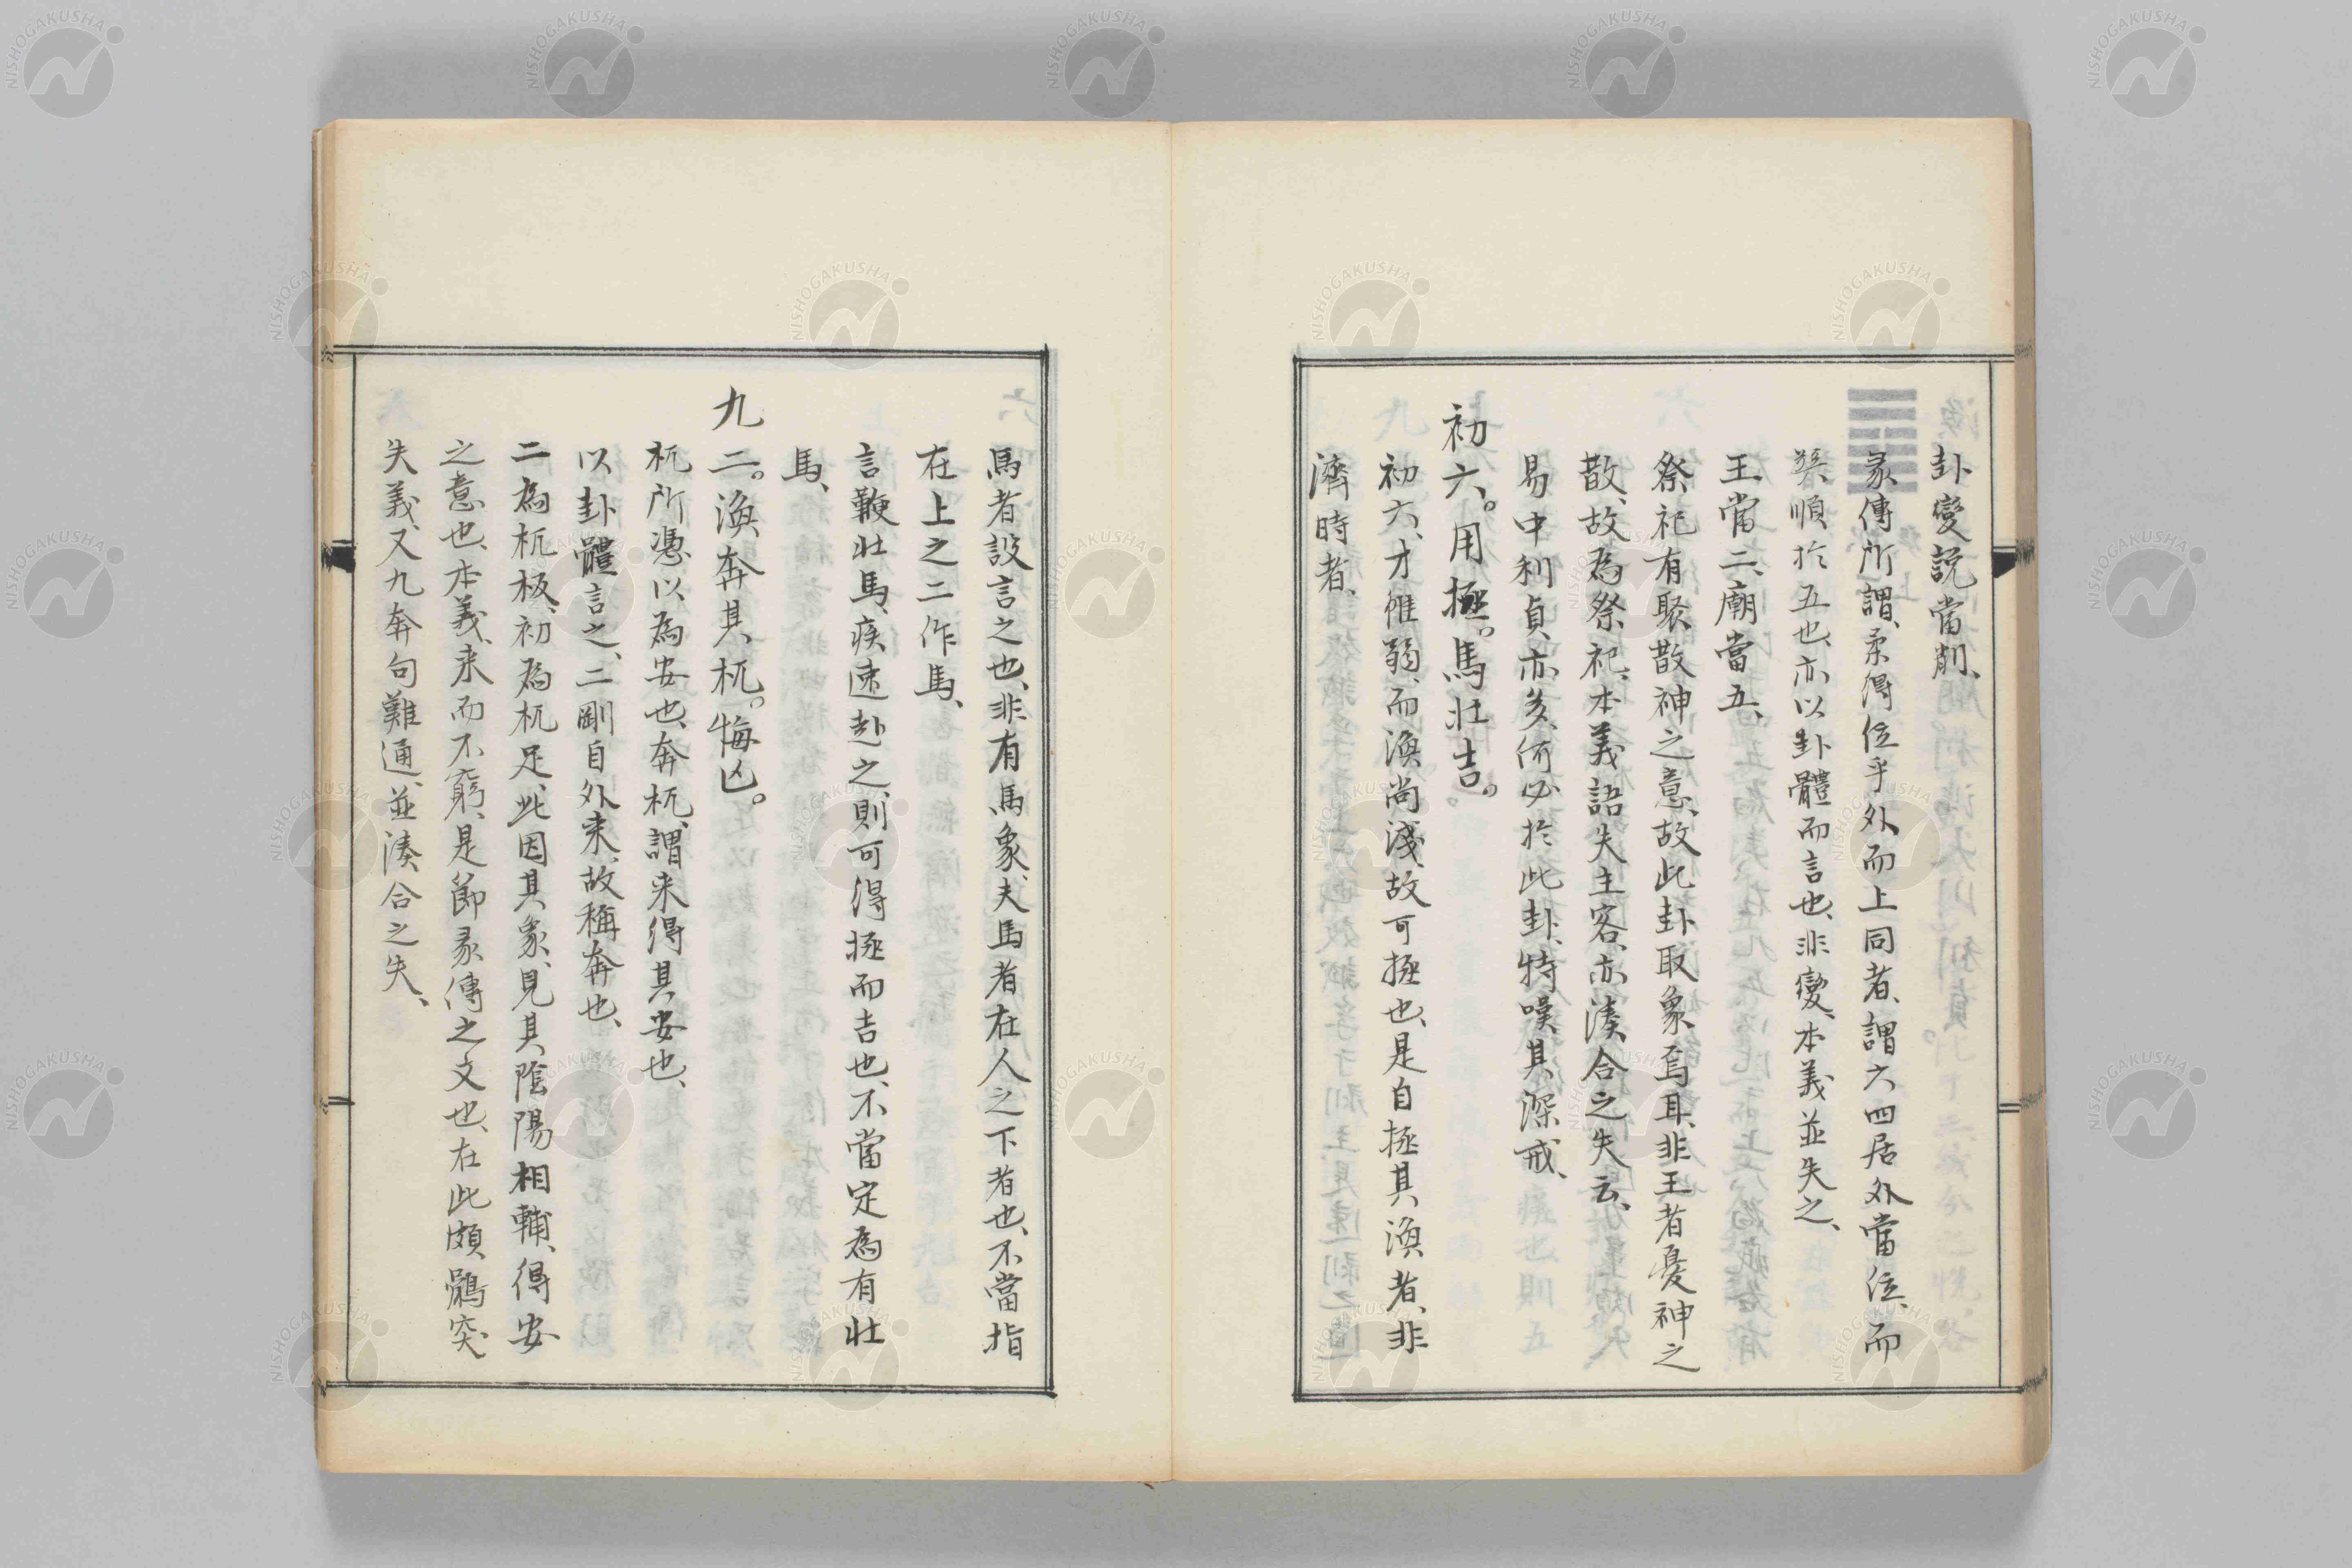 卦變説當削、
彖傳所謂、柔得位乎外而上同者、謂六四居外當位、而
巽順於五也、亦以卦體而言也、非變、本義並失之、
王當二、廟當五、
祭祀有聚散神之意、故此卦取象焉耳、非王者憂神之
散、故為祭祀、本義語失主客、亦湊合之失云、
易中利貞亦多、何必於此卦、特嘆其深戒、
初六。用拯。馬壯吉。
初六、才惟弱、而渙尚淺、故可拯也、是自拯其渙者、非
濟時者、
馬者設言之也、非有馬象、夫馬者在人之下者也、不當指
在上之二作馬、
言鞭壯馬、疾速赴之、則可得拯而吉也、不當定為有壯
馬、
九二。渙奔其机。悔凶。
机所憑以為安也、奔机、謂来得其安也、
以卦體言之、二剛自外来、故稱奔也、
二為机板、初為机足、此因其象、見其陰陽相輔、得安
之意也、本義、来而不窮、是節彖傳之文也、在此頗鶻突
失義、又九奔句難通、並湊合之失、
NISHOGAKUSHA